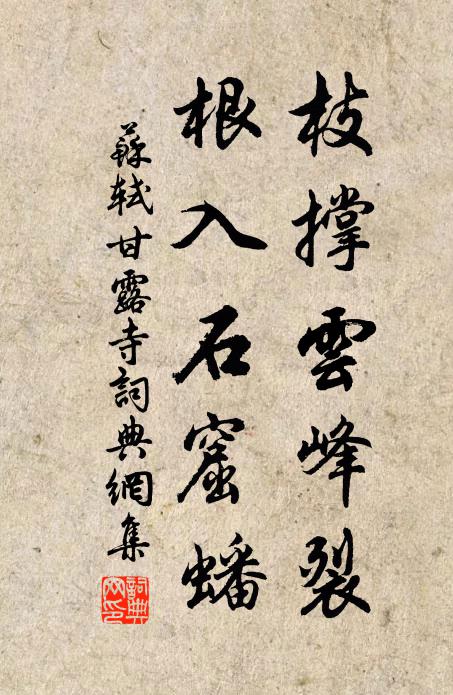 枝撐雲峰裂
根入石窟蟠
蘇軾甘露寺詞典網集
詞典網印